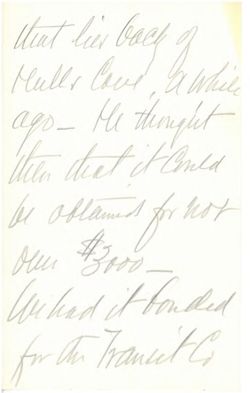 that lies back of
Hulls Cove, a while
ago — He thought
then that it could
be obtained for not
over $3000 —
We had it bonded
for the Transit Co